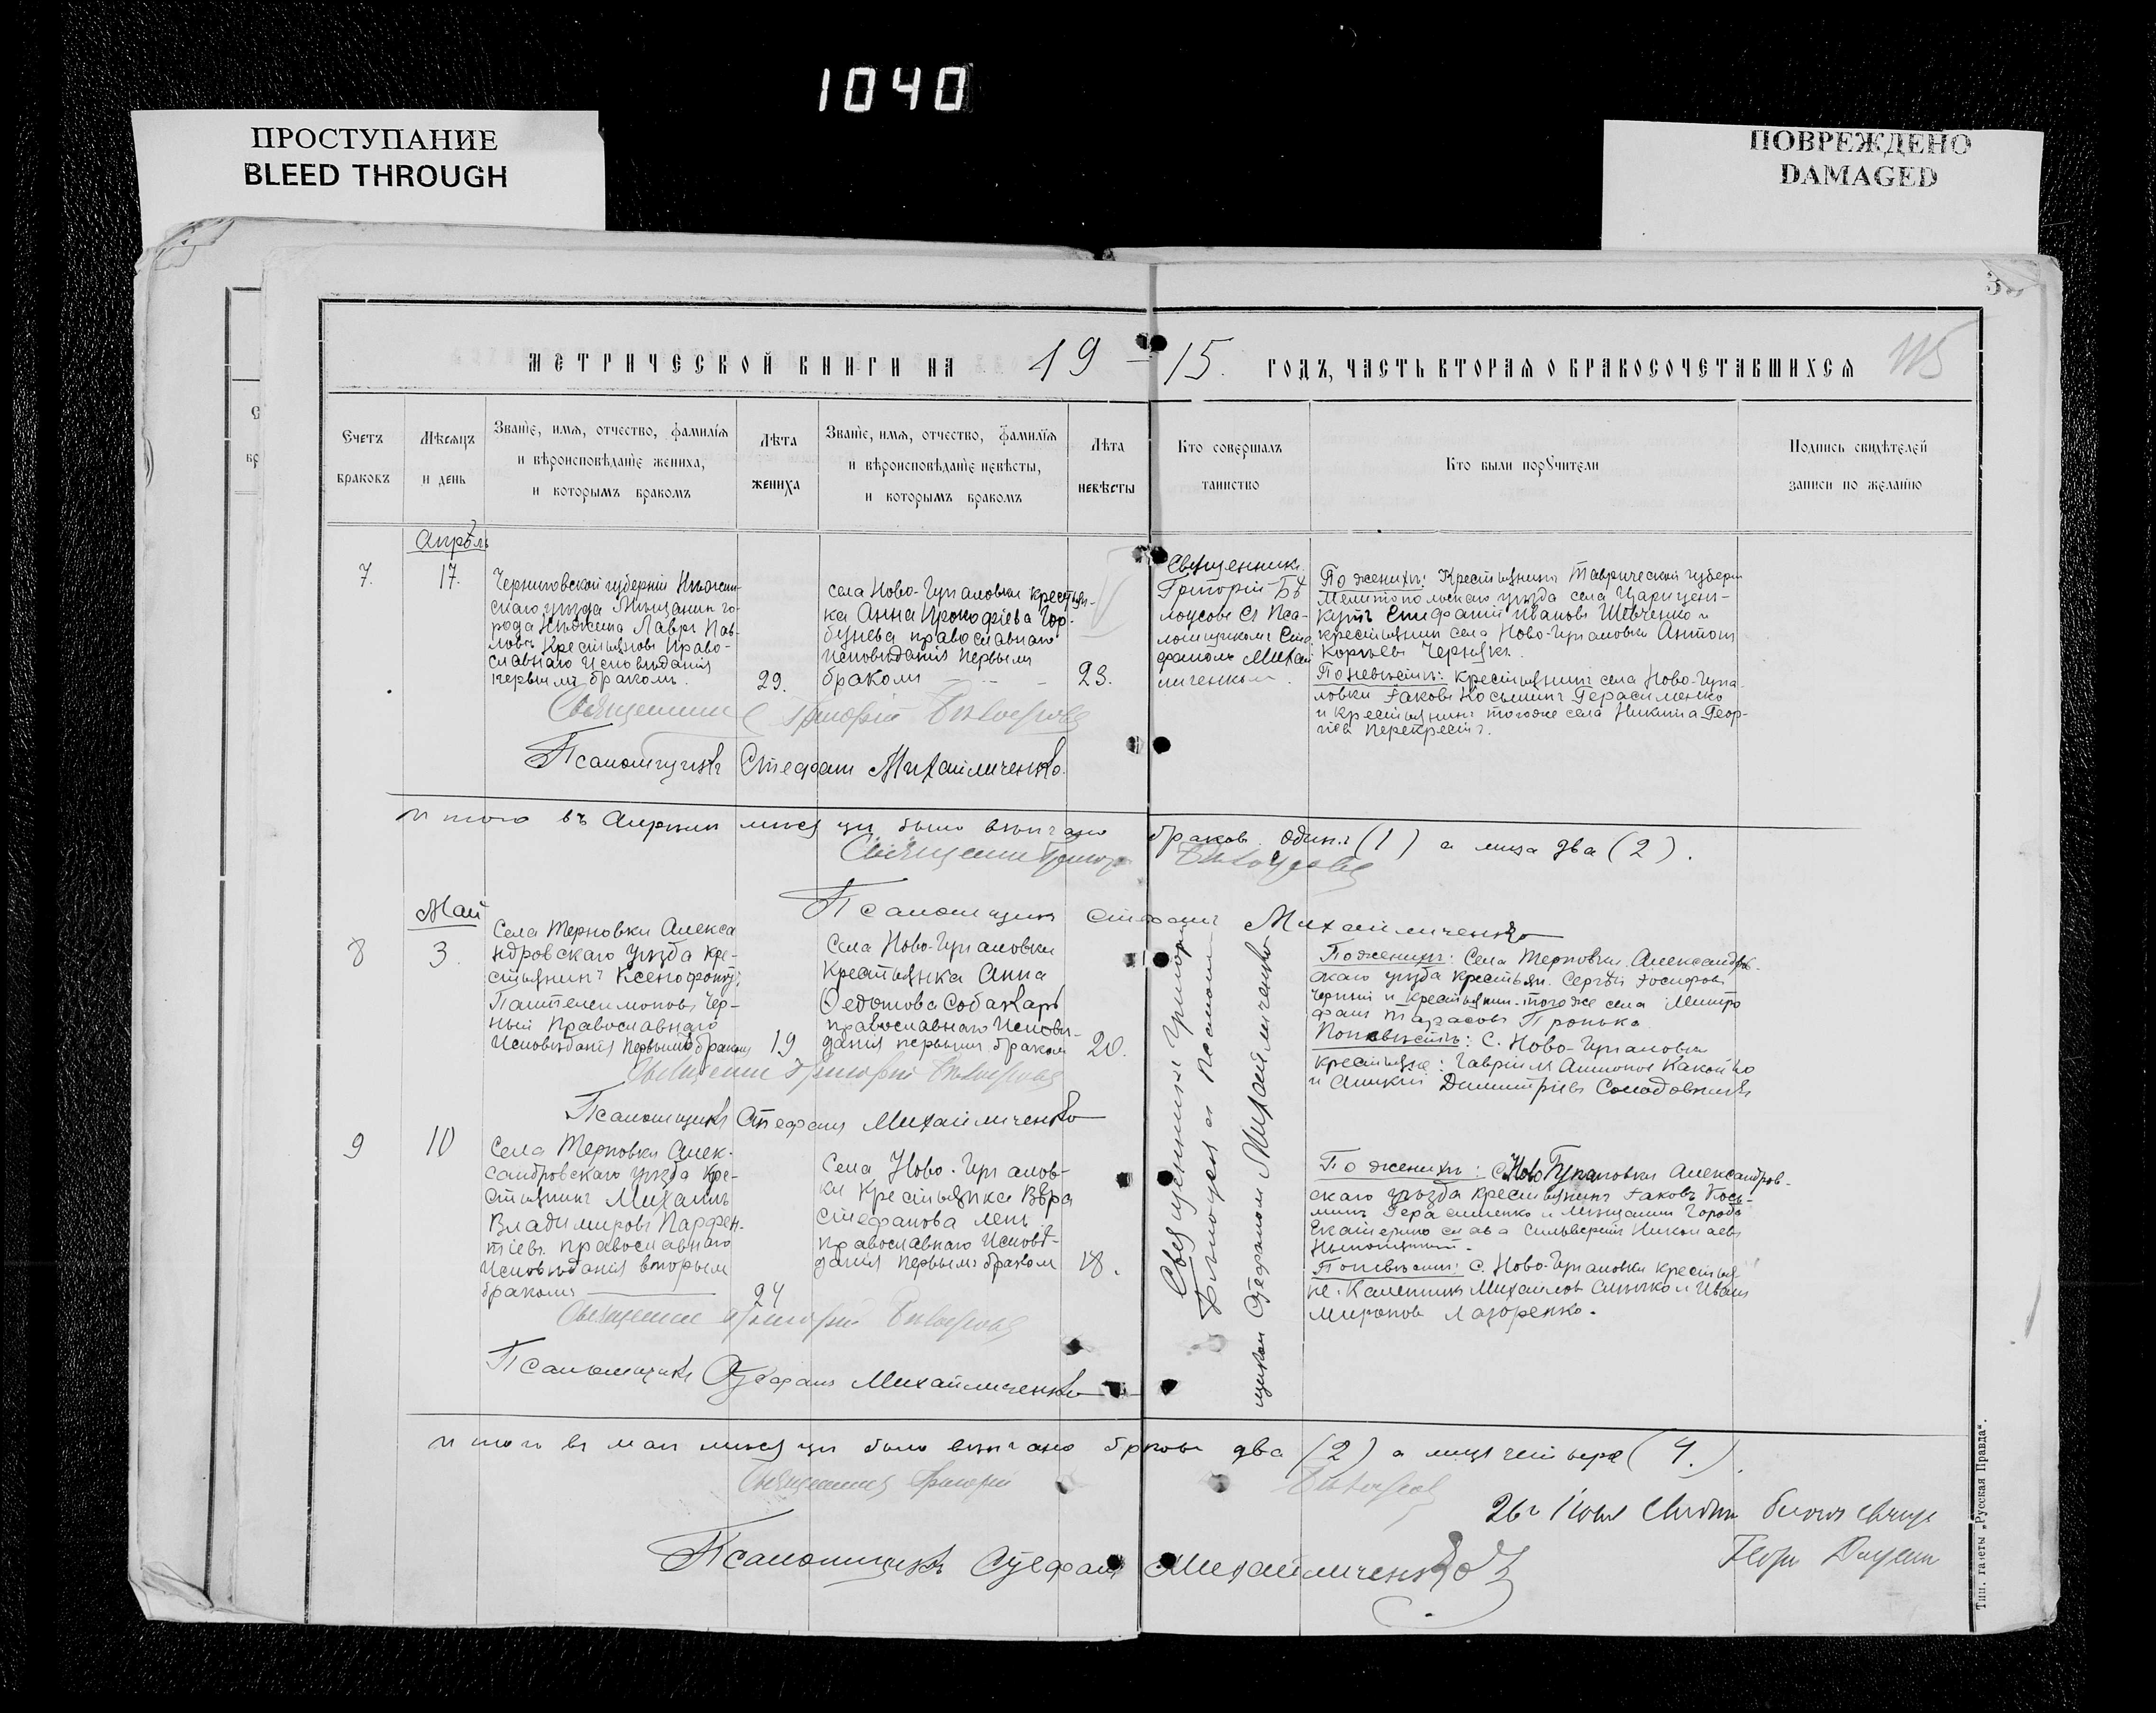 1040
ПРОСТУПАНИЕ
BLEED THROUGH
ПОВРЕЖДЕНО
DAMAGED
МЕТРИЧЕСКОЙ КНИГИ НА 19 – 15. ГОДЪ, ЧАСТЬ ВТОРАЯ О БРАКОСОЧЕТАВШИХСЯ
115
Счетъ
браковъ
Мѣсяцъ
и день
Званіе, имя, отчество, фамилія
и вѣроисповѣданіе жениха,
и которымъ бракомъ
Лѣта
жениха
Званіе, имя, отчество, фамилія
и вѣроисповѣданіе невѣсты,
и которымъ бракомъ
Лѣта
невѣсты
Кто совершалъ
таинство
Кто были поручители
Подпись свидѣтелей
записи по желанію
Апрѣль
7.
17.
Черниговской губерніи Нѣжин-
скаго уѣзда Мѣщанин го-
рода Нѣжина Лавръ Пав-
ловъ Крестьяновъ Право-
славнаго Исповѣданія
первымъ бракомъ.
29.
села Ново-Гупаловки Крестьян-
ка Анна Прокофіева Гор-
бунева православнаго
Исповѣданія первымъ
бракомъ
23.
Священникъ
Григорій Бѣ
лоусовъ съ Пса-
ломщикомъ Сте
фаномъ Михай
личенком.
По женихѣ: Крестьянинъ Таврической губерн
Мелитопольскаго уѣзда села Царицен-
кутъ Епифаній Ивановъ Шевченко и
крестьянин села Ново-Гупаловки Антон
Корнѣевъ Чернякъ.
По невѣстѣ: крестьянинъ села Ново-Гупа-
ловки Іаковъ Косьминъ Герасименко
и крестьянинъ тогоже села Никита Геор-
гіев Перекрестъ.
Священник Григорій Бѣлоусовъ
Псаломщикъ Стефан Михайличенко.
Итого въ Апрѣлѣ мѣсяцѣ было вѣнчано браков один (1) а лица два (2).
Священник Григор Бѣлоусовъ
Псаломщикъ Стефанъ Михайличенко
Май
8
3.
Села Терновки Алекса
ндровскаго уѣзда Кре-
стьянинъ Ксенофонтъ
Пантелеимоновъ Чер-
ный Православнаго
Исповѣданія Первымъ браком
19
Села Ново-Гупаловки
Крестьянка Анна
Федотова Собакарь
православнаго Исповѣ-
данія первымъ браком
20.
Священникъ Григорій
Бѣлоусов съ Псалом
щиком Стефаном Михайличенко
По женихѣ: Села Терновки Александров-
скаго уѣзда крестьян. Сергѣй Іосифовъ
Черный и Крестьянин тогоже села Митро
фанъ Тарасовъ Пронько
По невѣстѣ: С. Ново-Гупаловки
крестьяне: Гавріилъ Антонов
и Димитріевъ
Священник Григорій Бѣлоусовъ
Псаломщикъ Стефанъ Михайличенко
9
10
Села Терновки Алек-
сандровскаго уѣзда Кре-
стьянинъ Михаилъ
Владимировъ Парфен-
тіевъ православнаго
Исповѣданія вторым
бракомъ
24
Села Ново-Гупалов-
ки Крестьянка Вѣра
Стефанова
православнаго Исповѣ-
данія первымъ браком
18.
По женихѣ: С. Ново Гупаловки Александров-
скаго уѣзда крестьянинъ Іаковъ Кось-
минъ Герасименко и Мѣщанин Города
Екатеринослава Сильверстъ Николаевъ
По невѣстѣ: С. Ново-Гупаловки Крестья
не: Михаиловъ и Иванъ
Миронов Лазоренко.
Священник Григорій Бѣлоусовъ
Псаломщикъ Стефанъ Михайличенко
Итого въ маѣ мѣсяцѣ было вѣнчано браковъ два (2) а лицъ четыре (4.).
Священникъ Григорій Бѣлоусов
Псаломщикъ Стефан Михайличенко
Тип. газеты „Русская Правда“.